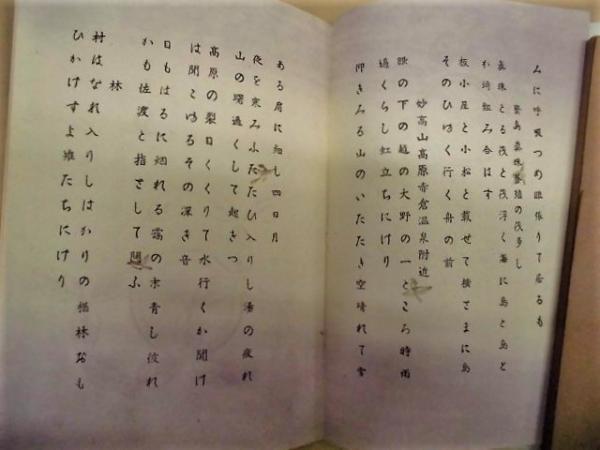 みに呼吸つめ眼張りて居るも
真珠とる茂と茂浮く海に島と島と
か琦組み合はす
板小屋と小松と載せて横さまに島
そのひゆく行く舟の前
妙高山高原赤倉温泉附近
眼の下の越の大野の一ところ時雨
過くらし虹立ちにけり
仰きみる山のいたたき空晴れて雪
ある肩に細し四日月
夜を寒みふたたひ入りし湯の疲れ
山の曙過くして起きつ
高原の裂目くくりて水行くか聞け
は聞こゆるその深き音
日もはるに烟れる靄の末青し彼れ
かも佐渡と指さして問ふ
林
村はなれ入りしはかりの楢林おも
ひかけすよ雉たちにけり